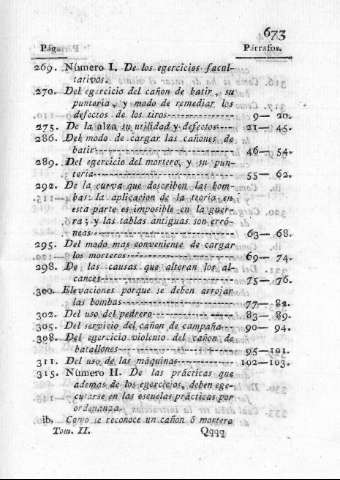 673
Pág. Párrafos.
269. Número I. De los egercicios facul-
tativos.
270. Del egercicio del cañon de batir, su
puntería, y modo de remediar los
defectos de los tiros 9— 20.
275. De la alza su utilidad y defectos 21— 45.
286. Del modo de cargar los cañones de
batir 46— 54.
289. Del egercicio del mortero, y su pun-
tería 55— 62.
292. De la curva que describen las bom-
bas: la aplicacion de la teoría en
esta parte es imposible en la guer-
ra; y las tablas antiguas son erró-
neas 63— 68.
295. Del modo mas conveniente de cargar
los morteros 69— 74.
298. De las causas que alteran los al-
cances 75— 76.
300. Elevaciones porque se deben arrojar
las bombas 77— 82.
302. Del uso del pedrero 83— 89.
305. Del servicio del cañon de campaña 90— 94.
308. Del egercicio violento del cañon de
batallones 95—101.
311. Del uso de las máquinas 102—103.
315. Número II. De las prácticas que
ademas de los egercicios, deben ege-
cutarse en las escuelas prácticas por
ordenanza.
ib. Como se reconoce un cañon ó mortero
Tom. II. Qqqq